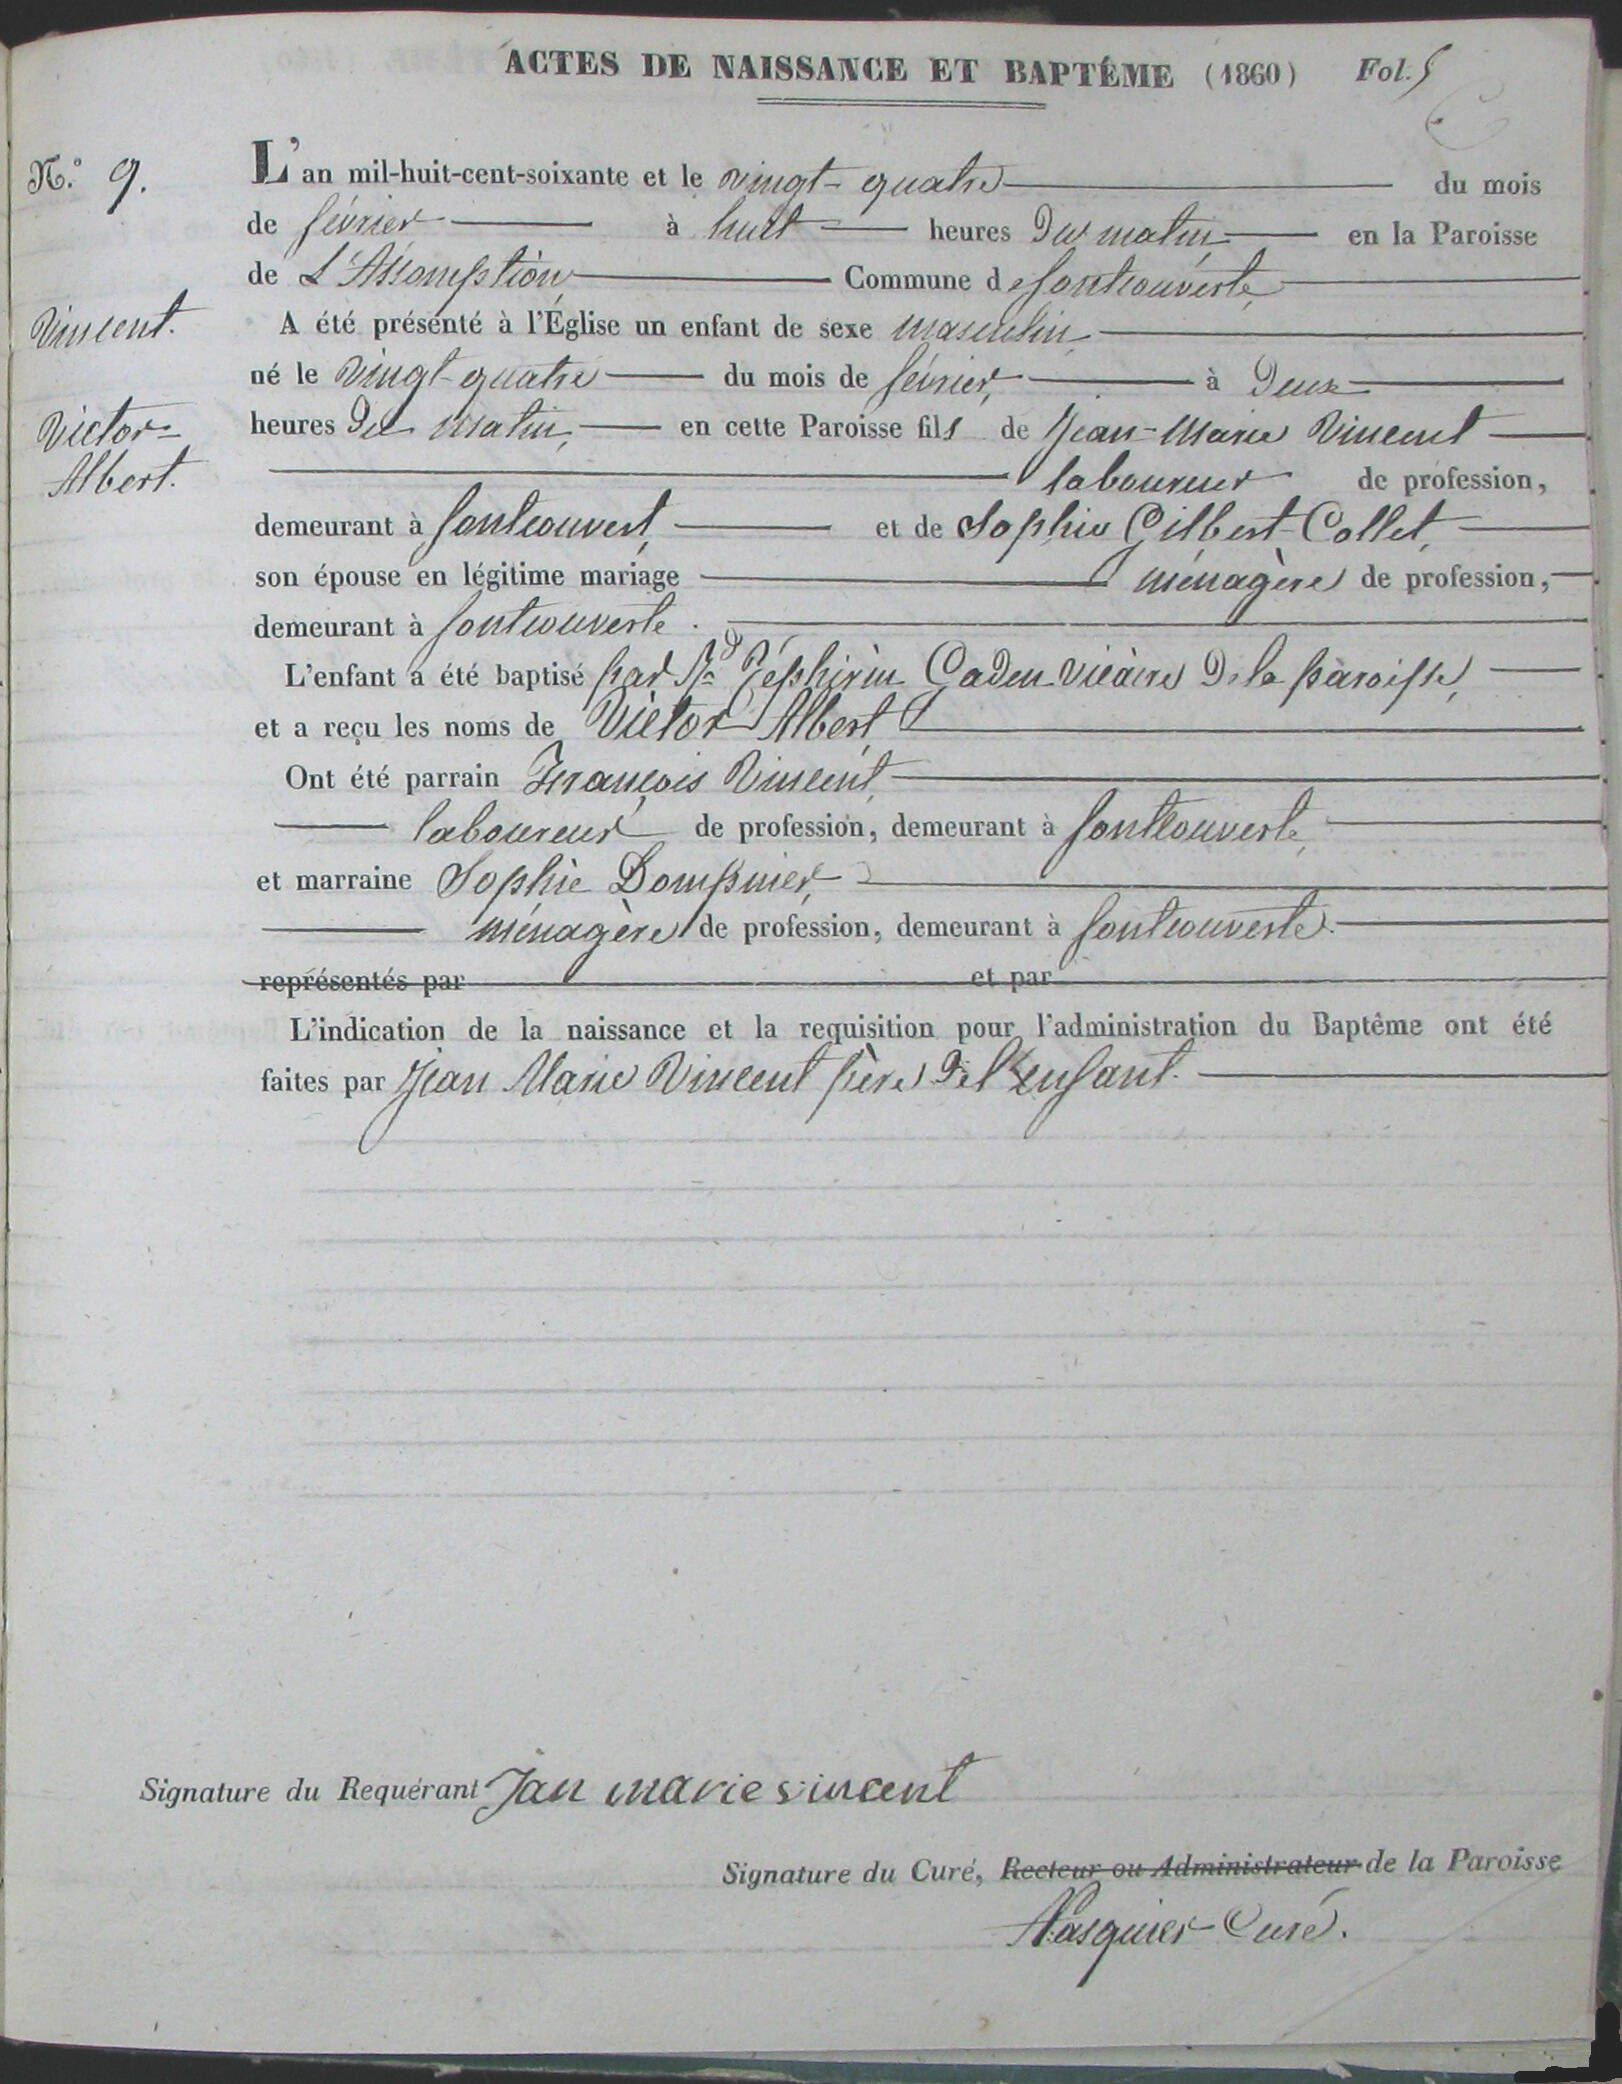 ACTES DE NAISSANCE ET BAPTÊME (1860) Fol. 5
N.º 9.
L'an mil-huit-cent-soixante et le vingt-quatre du mois
de février à huit heures du matin, en la Paroisse
de L'Assomption, Commune de fontcouverte
Vincent.
A été présenté à l'Église un enfant de sexe masculin,
né le vingt-quatre du mois de février, à deux
Victor-
Albert.
heures du matin, en cette Paroisse fils de Jean-Marie Vincent
laboureur de profession,
demeurant à fontcouvert, et de Sophie Gilbert-Collet,
son épouse en légitime mariage ménagère de profession,
demeurant à fontcouverte.
L'enfant a été baptisé par Rd Zéphirin Gaden vicaire de la paroisse,
et a reçu les noms de Victor Albert
Ont été parrain François Vincent,
laboureur de profession, demeurant à fontcouverte,
et marraine Sophie Dompnier,
ménagère de profession, demeurant à fontcouverte.
représentés par et par
L'indication de la naissance et la requisition pour l'administration du Baptême ont été
faites par Jean Marie Vincent père de l'enfant.
Signature du Requérant Jan marie vincent
Signature du Curé, Recteur ou Administrateur de la Paroisse
Curé.